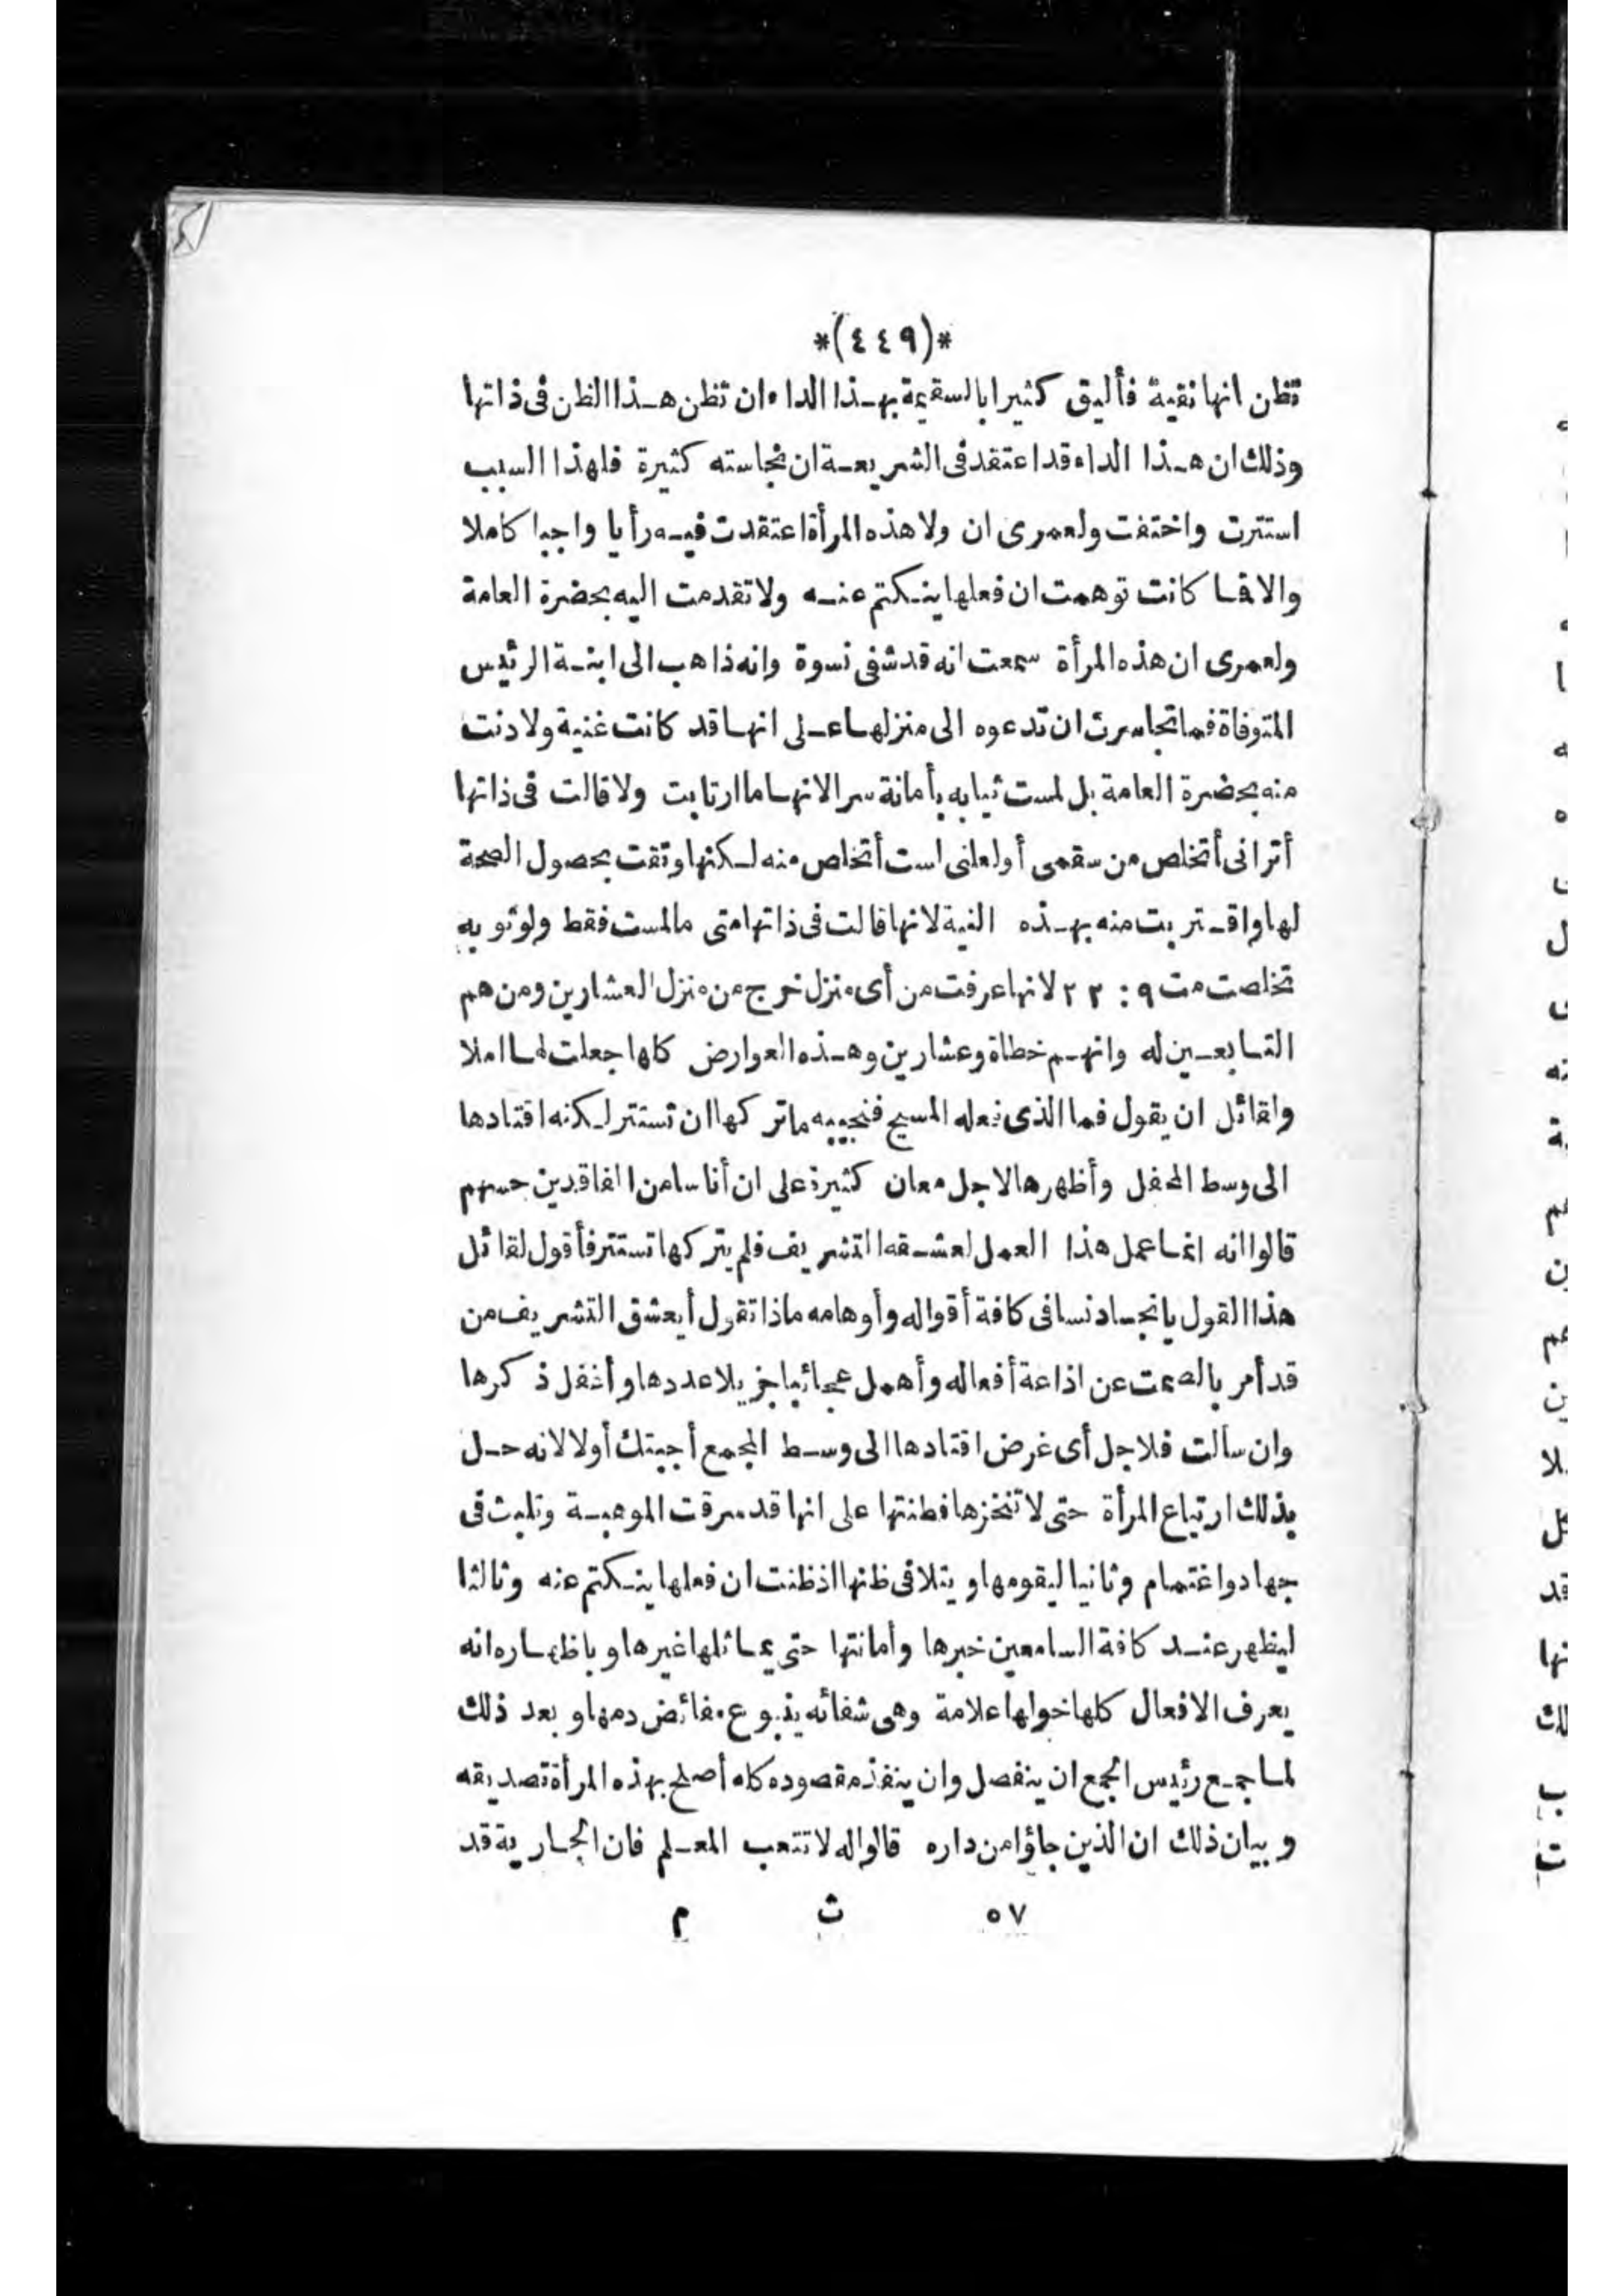 *(٤٤٩)*
تظن انها نقية فأليق كثيرا بالسقيمة بهذا الداء ان تظن هذا الظن فى ذاتها
وذلك ان هذا الداء قد اعتقد فى الشريعة ان نجاسته كثيرة فلهذا السبب
استترت واختفت ولعمرى ان ولا هذه المرأة اعتقدت فيه رأيا واجبا كاملا
والا فما كانت توهمت ان فعلها ينكتم عنه ولا تقدمت اليه بحضرة العامة
ولعمرى ان هذه المرأة سمعت انه قد شفى نسوة وانه ذاهب الى ابنة الرئيس
المتوفاة فما تجاسرت ان تدعوه الى منزلها على انها قد كانت غنية ولا دنت
منه بحضرة العامة بل لمست ثيابه بأمانة سرا لانها ما ارتابت ولا قالت فى ذاتها
أترانى أتخلص من سقمى أو لعلنى لست أتخلص منه لكنها وثقت بحصول الصحة
لها واقتربت منه بهذه النية لانها قالت فى ذاتها متى ما لمست فقط ولو ثوبه
تخلصت مت ٩ : ٢٢ لانها عرفت من أى منزل خرج من منزل العشارين ومن هم
التابعين له وانهم خطاة وعشارين وهذه العوارض كلها جعلت لها املا
ولقائل ان يقول فما الذى فعله المسيح فنجيبه ما تركها ان تستتر لكنه اقتادها
الى وسط المحفل وأظهرها لاجل معان كثيرة على ان أناسا من الفاقدين حسهم
قالوا انه انما عمل هذا العمل لعشقه التشريف فلم يتركها تستتر فأقول لقائل
هذا القول يا نجسا دنسا فى كافة أقواله وأوهامه ماذا تقول أيعشق التشريف من
قد أمر بالصمت عن اذاعة أفعاله وأهمل عجائبا جزيلا عددها وأغفل ذكرها
وان سألت فلاجل أى غرض اقتادها الى وسط المجمع أجبتك أولا لانه حل
بذلك ارتياع المرأة حتى لا تنخزها فطنتها على انها قد سرقت الموهبة وتلبث فى
جهاد واغتمام وثانيا ليقومها ويتلافى ظنها اذ ظنت ان فعلها ينكتم عنه وثالثا
ليظهر عند كافة السامعين خبرها وأمانتها حتى يماثلها غيرها وباظهاره انه
يعرف الافعال كلها خولها علامة وهى شفائه ينبوع مفائض دمها وبعد ذلك
لما جمع رئيس الجمع ان ينفصل وان ينفذ مقصوده كله أصلح بهذه المرأة تصديقه
وبيان ذلك ان الذين جاؤا من داره قالوا له لا تتعب المعلم فان الجارية قد
٥٧ ث م